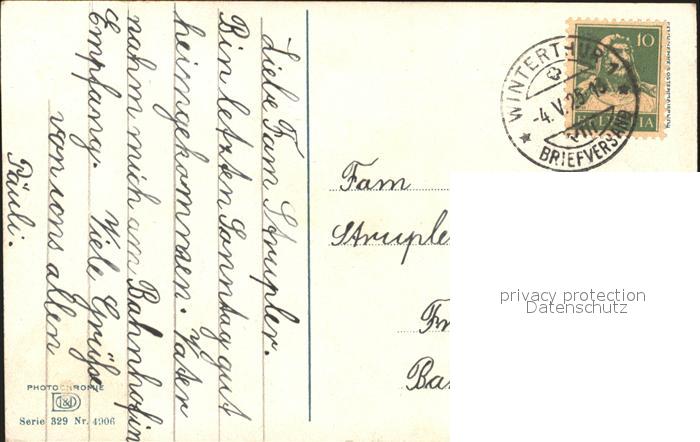 Liebe Fam Strupler.
Bin letzten Sonntag gut
heimgekommen. Vater
nahm mich am Bahnhof in
Empfang. Viele Grüße
von uns allen
Päuli.
Fam
Strupler
10
HELVETIA
WINTERTHUR
-4.V.25-18
BRIEFVERSAND
privacy protection
Datenschutz
PHOTOCHROMIE
Serie 329 Nr. 4906